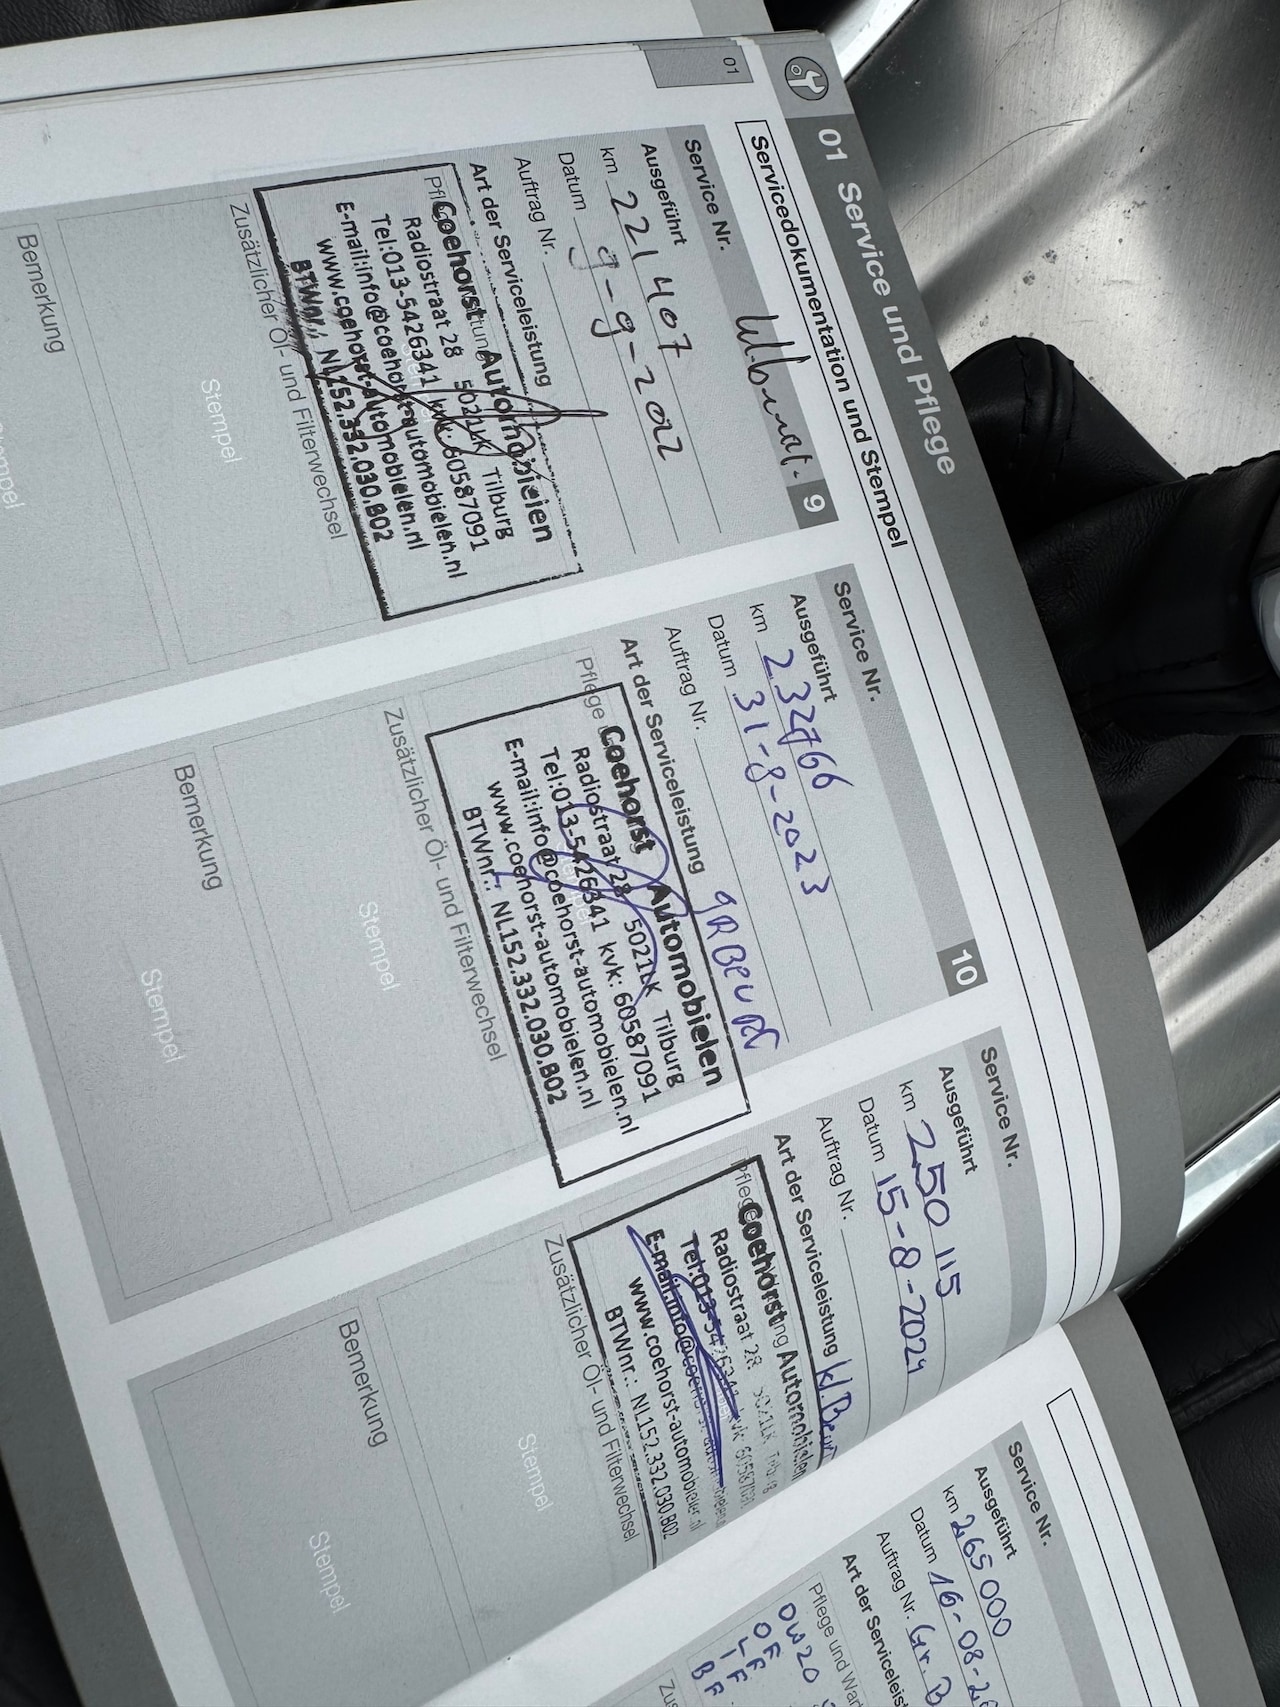 01 Service und Pflege
01
Servicedokumentation und Stempel
Service Nr.
9
Ausgeführt
km 221407
Datum 9-9-2022
Auftrag Nr.
Art der Serviceleistung
Coehorst Automobielen
Radiostraat 28 5021LK Tilburg
Tel:013-5426341 kvk: 60587091
E-mail:info@coehorst-automobielen.nl
www.coehorst-automobielen.nl
BTWnr.: NL152.332.030.B02
Zusätzlicher Öl- und Filterwechsel
Stempel
Bemerkung
Stempel
Service Nr.
10
Ausgeführt
km 232766
Datum 31-8-2023
Auftrag Nr.
Art der Serviceleistung
Pflege
Coehorst Automobielen
Radiostraat 28 5021LK Tilburg
Tel:013-5426341 kvk: 60587091
E-mail:info@coehorst-automobielen.nl
www.coehorst-automobielen.nl
BTWnr.: NL152.332.030.B02
Zusätzlicher Öl- und Filterwechsel
Stempel
Bemerkung
Stempel
Service Nr.
Ausgeführt
km 250115
Datum 15-8-2024
Auftrag Nr.
Art der Serviceleistung
Pflege
Coehorst Automobielen
Radiostraat 28 5021LK Tilburg
Tel:013-5426341 kvk: 60587091
E-mail:info@coehorst-automobielen.nl
www.coehorst-automobielen.nl
BTWnr.: NL152.332.030.B02
Zusätzlicher Öl- und Filterwechsel
Stempel
Bemerkung
Stempel
Service Nr.
Ausgeführt
km 265000
Datum 16-08-2
Auftrag Nr. Gr. B
Art der Serviceleist
Pflege und War
OW20
OF
LF
IF
BF
Zus